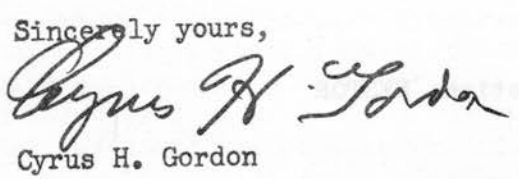 Sincerely yours,
Cyrus H. Gordon
Cyrus H. Gordon